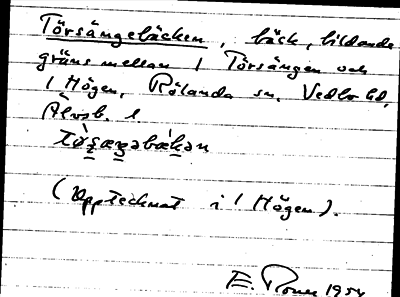 Törsängebäcken, bäck, bildande
gräns mellan 1 Törsängen och
1 Högen, Rölanda sn, Vedbo hd,
Älvsb. l
(Upptecknat i 1 Högen).
E. 1954